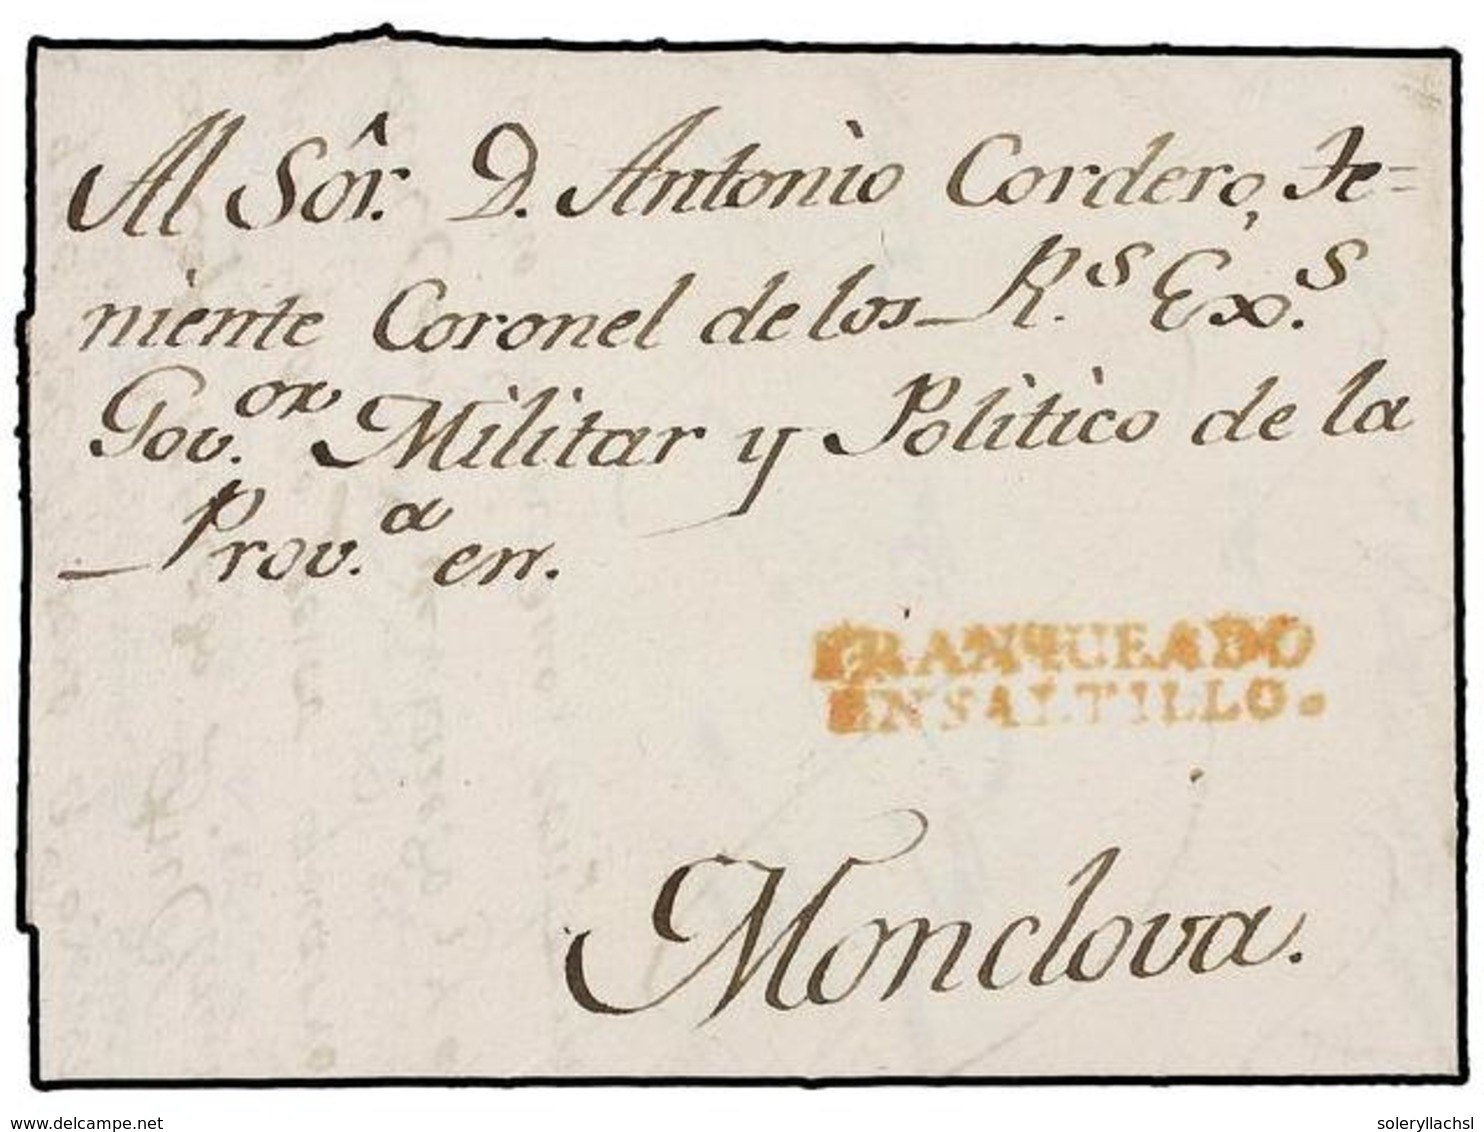 Al Sôr. D. Antonio Cordero, Te=
niente Coronel de los R.s Ex.s
Gov.or Militar y Politico de la
Prov.a en.
FRANQUEADO
EN SALTILLO.
Monclova.
www.delcampe.net
soleryllachsl